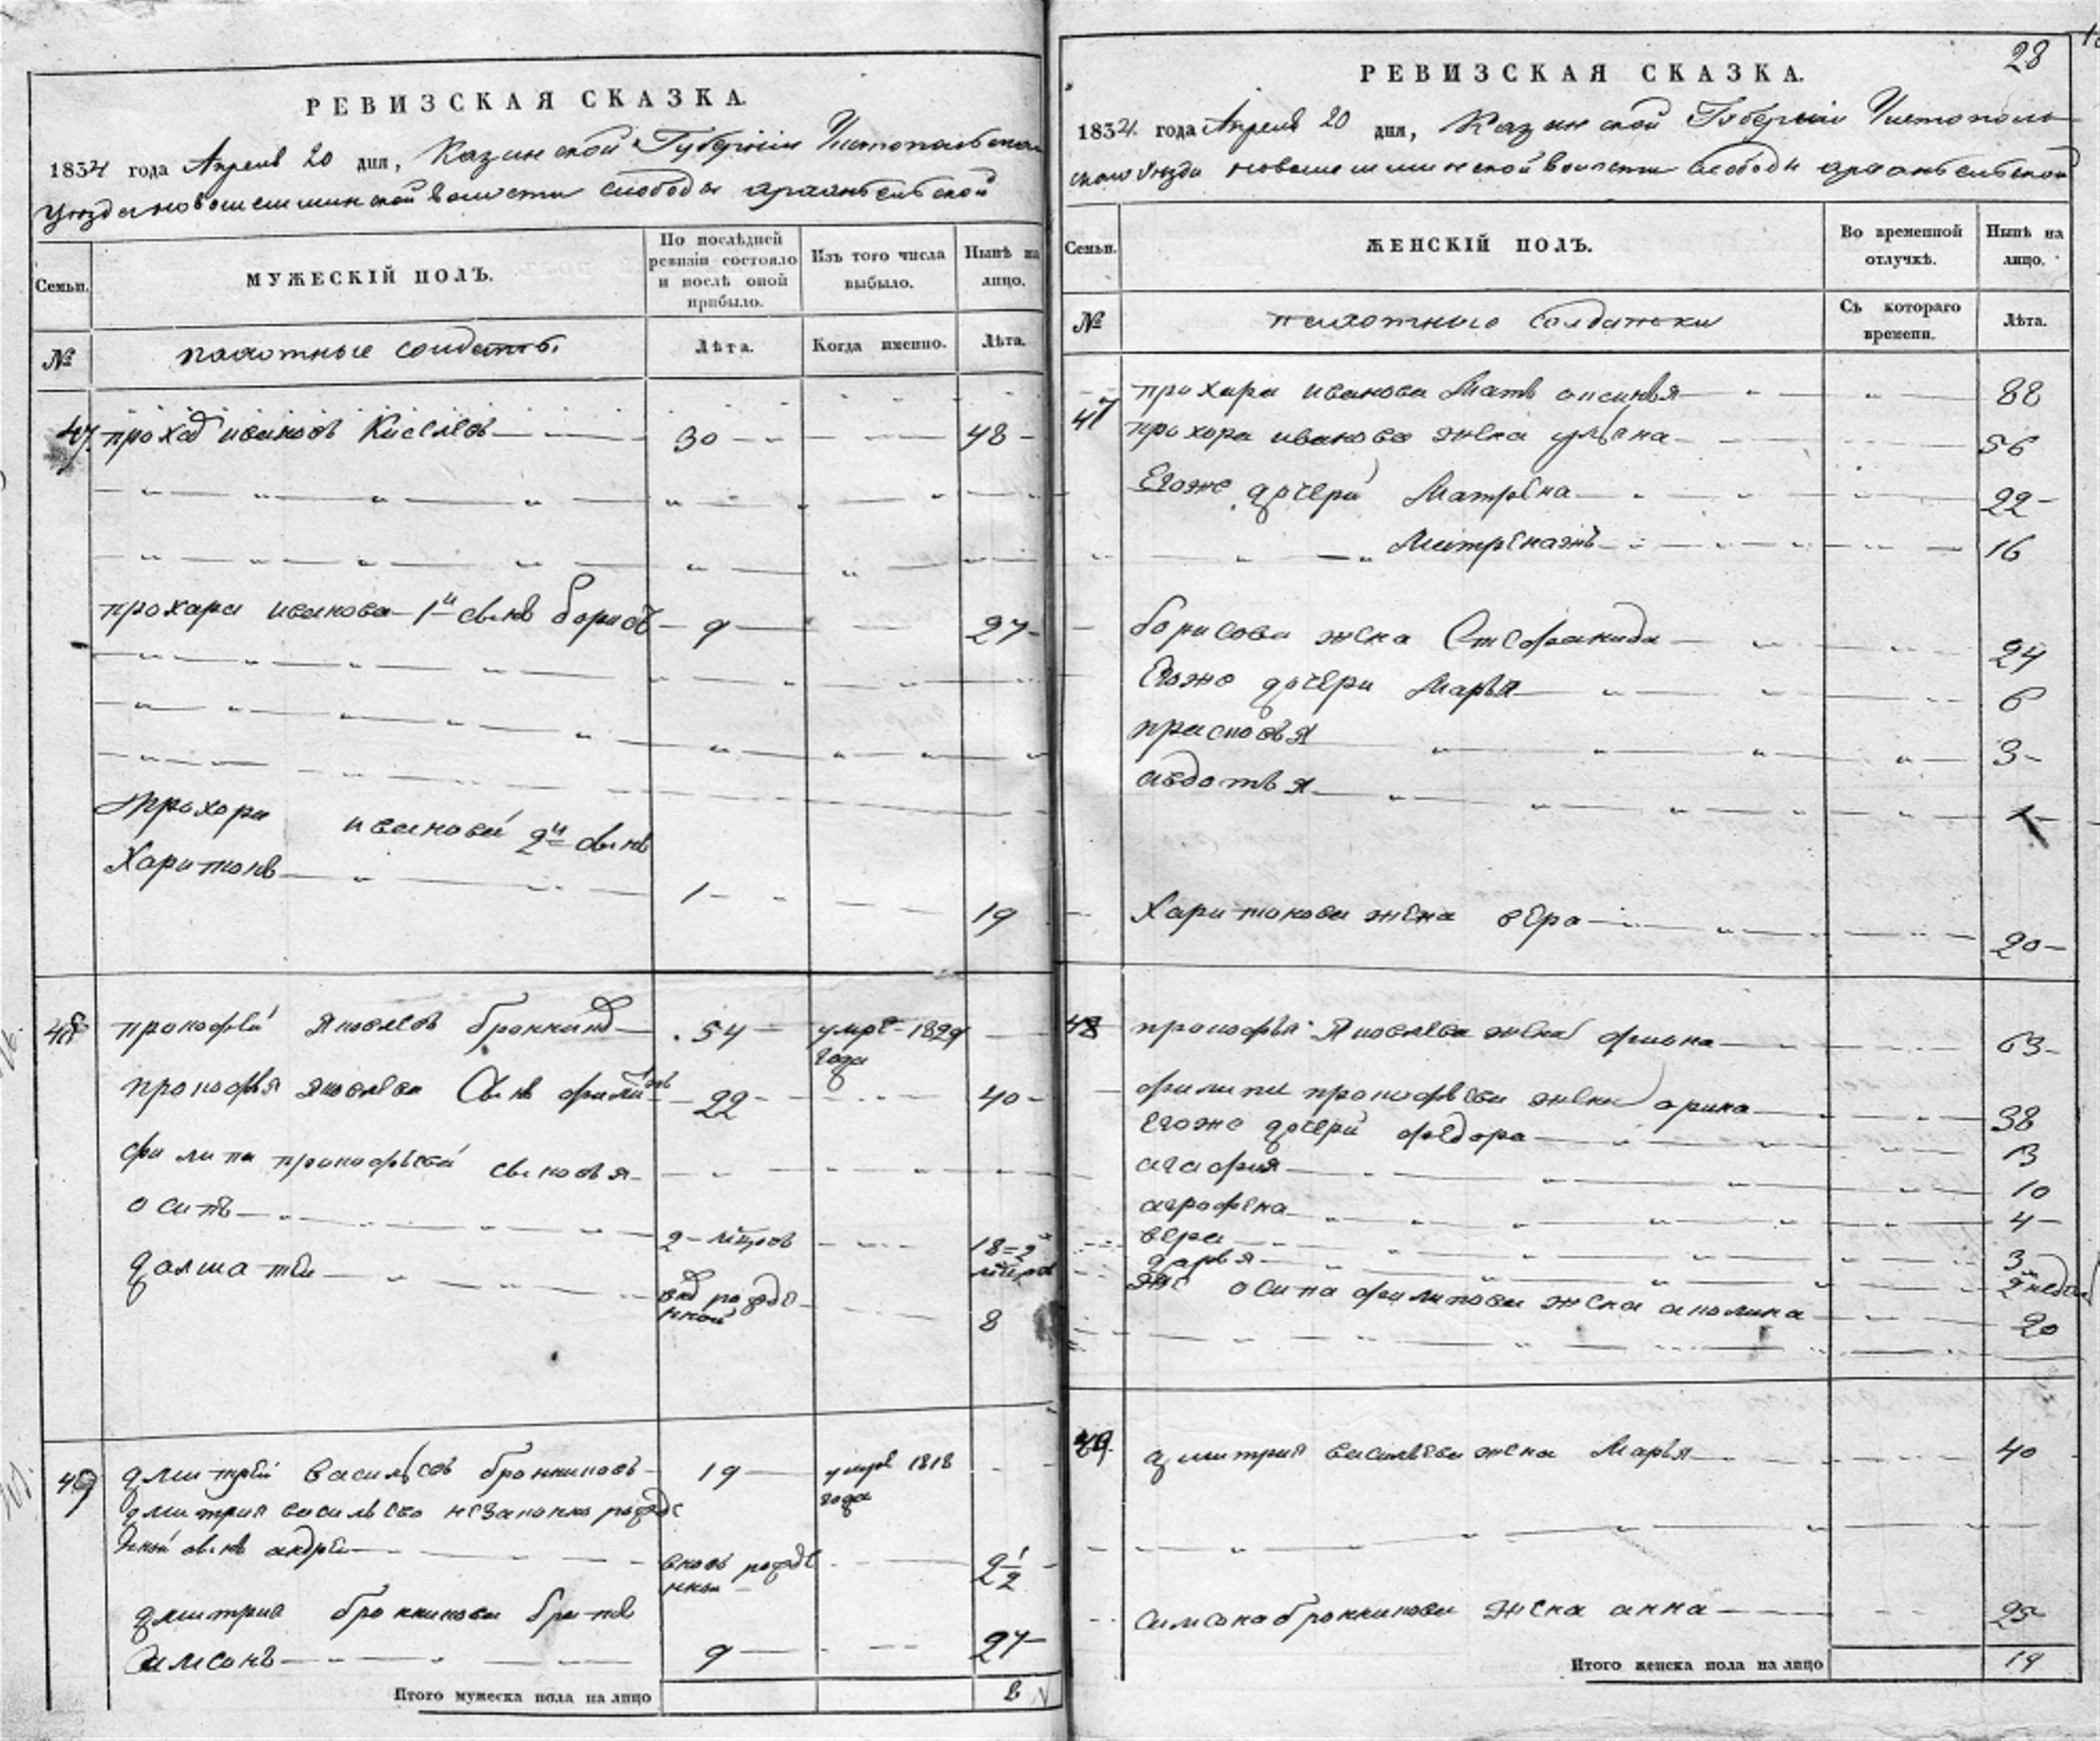 РЕВИЗСКАЯ СКАЗКА.
1834 года Апреля 20 дня, Казанской Губернии Чистопольскаго
уезда новошешминской волости слободы архангельской
Семьи. МУЖЕСКІЙ ПОЛЪ. По послѣдней ревизіи состояло и послѣ оной прибыло. Изъ того числа выбыло. Нынѣ на лицо.
№ пахотные солдаты. Лѣта. Когда именно. Лѣта.
47. прохор ивановъ Киселевъ 30 48
прохара иванова 1й сынъ борисъ 9 27
прохора иванова 2й сынъ
Харитонъ 1 19
48 прокофей Яковлевъ бронниковъ 54 умре 1829 года
прокофья яковлева Сынъ филипъ 22 40
филипа прокофьева сыновья
осипъ 2 18
далматей вновь рожденной 8
49 дмитрей васильевъ бронниковъ 19 умре 1818 года
дмитрия васильева незаконно рожде
нной сынъ андрей вновь рожденной 2 1/2
дмитрия бронникова братъ
Симсонъ 9 27
Итого мужеска пола на лицо 8
28
РЕВИЗСКАЯ СКАЗКА.
1834 года Апреля 20 дня, Казанской Губернии Чистополь
скаго уезда новошешминской волости слободы архангельской
Семьи. ЖЕНСКІЙ ПОЛЪ. Во временной отлучкѣ. Нынѣ на лицо.
№ пахотныхо солдатски Съ котораго времени. Лѣта.
47 прохара иванова Мать аксинья 88
прохора иванова жена ульяна 56
Егоже дочери Матрена 22
Матренажъ 16
борисова жена Стефанида 24
Егоже дочери Марья 6
прасковья 3
авдотья 1
Харитонова жена вера 20
48 прокофья Яковлева жена фиона 63
филипа прокофьева жена арина 38
Егоже дочери федора 13
агафия 10
аграфена 4
вера 3
дарья 2 недели
осипа филипова жена аколина 20
49. дмитрия васильева жена Марья 40
симсона бронникова жена анна 25
Итого женска пола на лицо 19